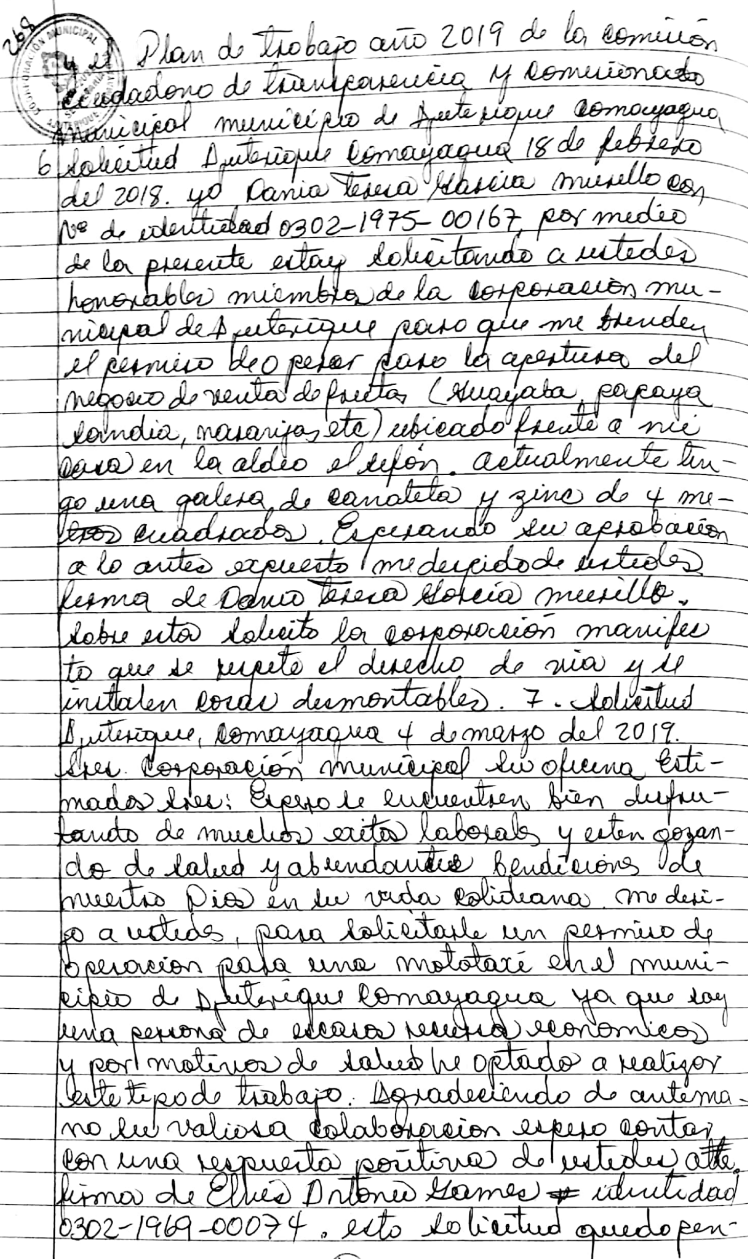 268
y el Plan de trabajo año 2019 de la comisión
ciudadano de transparencia y comisionado
Municipal municipio de Ajuterique Comayagua
6 solicitud Ajuterique Comayagua 18 de febrero
del 2018. yo Dania Teresa Garcia murillo con
Nº de identidad 0302-1975-00167, por medio
de la presente estoy solicitando a ustedes
honorables miembros de la corporación mu-
nicipal de Ajuterique para que me brinden
el permiso de operar para la apertura del
negocio de venta de frutas (Guayaba, papaya
sandia, naranjas, etc) ubicado frente a mi
casa en la aldea el sifón. actualmente ten-
go una galera de canaleta y zinc de 4 me-
tros cuadrados. Esperando su aprobación
a lo antes expuesto me despido de ustedes
firma de Dania Teresa Garcia murillo.
sobre esta solicito la corporación manifes
to que se respete el derecho de via y se
instalen cosas desmontables. 7. solicitud
Ajuterique, Comayagua 4 de marzo del 2019.
Sres. Corporación municipal su oficina Esti-
mados Sres: Espero se encuentren bien disfru-
tando de muchos exitos laborales y esten gozan-
do de salud y abundantes bendiciones de
nuestro Dios en su vida cotidiana. me diri-
jo a ustedes, para solicitarle un permiso de
operación para una mototaxi en el muni-
cipio de Ajuterique Comayagua ya que soy
una persona de escasos recursos economicos
y por motivos de salud he optado a realizar
este tipo de trabajo. Agradeciendo de antema-
no su valiosa colaboración espero contar
con una respuesta positiva de ustedes atte.
firma de Elvis Antonio Games # identidad
0302-1969-00074. esta solicitud quedo pen-